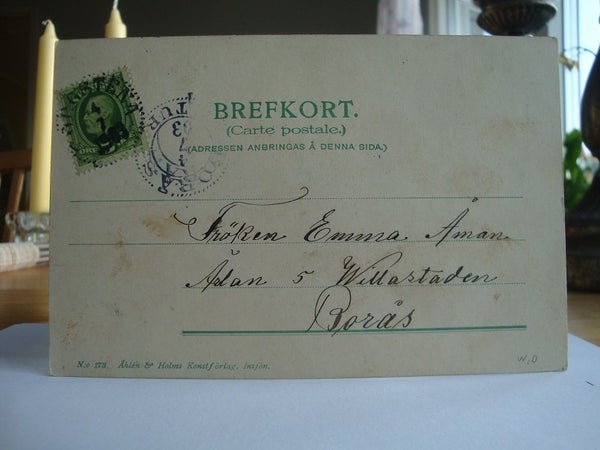 BREFKORT.
(Carte postale.)
(ADRESSEN ANBRINGAS Å DENNA SIDA.)
Fröken Emma Åman
5 Willastaden
Borås
N:o 173. Åhlén & Holms Konstförlag, Insjön.
W.D